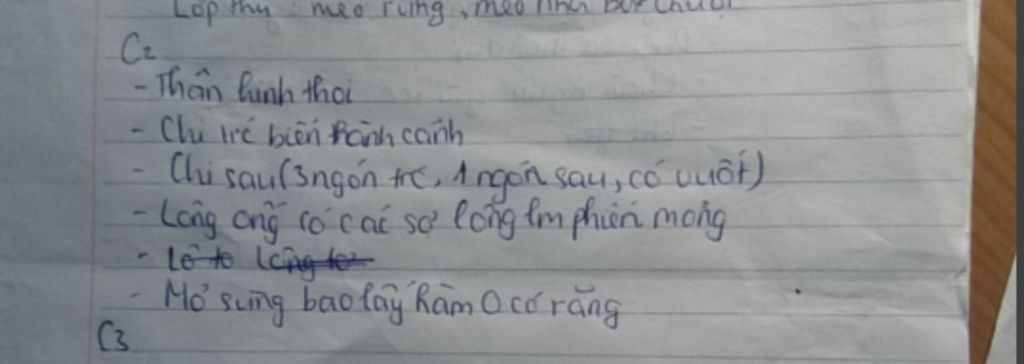 Lớp thú: mèo rừng, mèo nhà
C2
- Thân hình thoi
- Chi trc biến thành cánh
- Chi sau (3 ngón trc, 1 ngón sau, có vuốt)
- Lông ống có các sợ lông lm phiến mỏng
- Mỏ sừng bao lấy hàm 0 có răng
C3